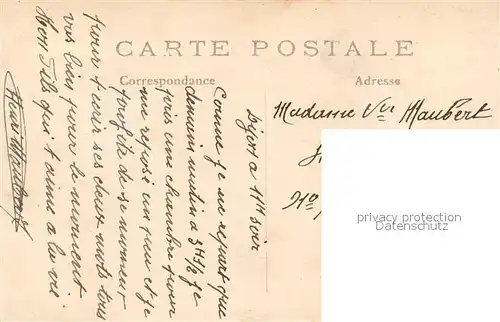 CARTE POSTALE
Correspondance
Adresse
Madame Vve Maubert
Dijon a 11H soir
Comme je ne repart que
demain matin a 3H1/2 je
pris une chambre pour
me reposé un peu et je
profite de se moment
pour t'écrir ses deux mots tous
vas bien pour le moment
Ton Fils qui t'aime a la vie
Maubert
privacy protection
watermark